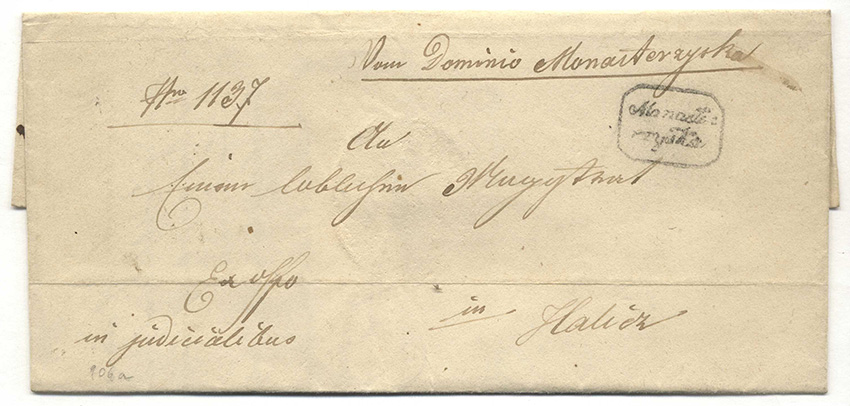 Vom Dominio Monasterzyska
Nro 1137
Monaster=
zyska
An
Einem loblichen Magistrat
Ex offo
in judicialibus
in Halicz
106a